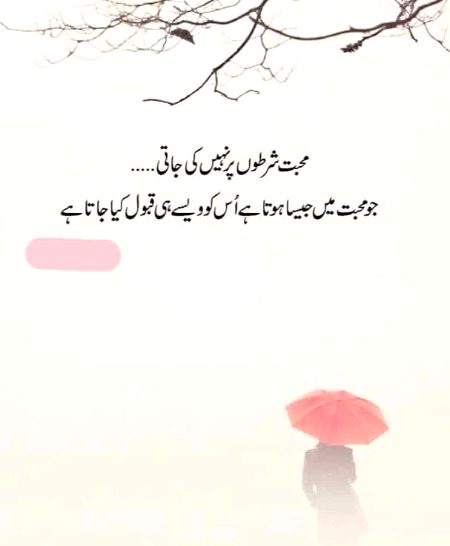 محبت شرطوں پر نہیں کی جاتی.....
جو محبت میں جیسا ہوتا ہے اُس کو ویسے ہی قبول کیا جاتا ہے